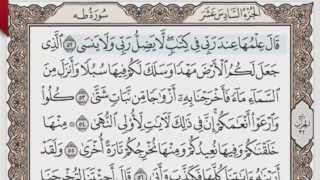 الجزء السادس عشر
سورة طه
قَالَ عِلْمُهَا عِندَ رَبِّي فِي كِتَٰبٍ لَّا يَضِلُّ رَبِّي وَلَا يَنسَى ٥٢ ٱلَّذِي
جَعَلَ لَكُمُ ٱلْأَرْضَ مَهْدًا وَسَلَكَ لَكُمْ فِيهَا سُبُلًا وَأَنزَلَ مِنَ
ٱلسَّمَآءِ مَآءً فَأَخْرَجْنَا بِهِۦٓ أَزْوَٰجًا مِّن نَّبَاتٍ شَتَّىٰ ٥٣ كُلُوا۟
وَٱرْعَوْا۟ أَنْعَٰمَكُمْ إِنَّ فِي ذَٰلِكَ لَءَايَٰتٍ لِّأُو۟لِي ٱلنُّهَىٰ ٥٤ مِنْهَا
خَلَقْنَٰكُمْ وَفِيهَا نُعِيدُكُمْ وَمِنْهَا نُخْرِجُكُمْ تَارَةً أُخْرَىٰ ٥٥ وَلَقَدْ
أَرَيْنَٰهُ ءَايَٰتِنَا كُلَّهَا فَكَذَّبَ وَأَبَىٰ ٥٦ قَالَ أَجِئْتَنَا لِتُخْرِجَنَا